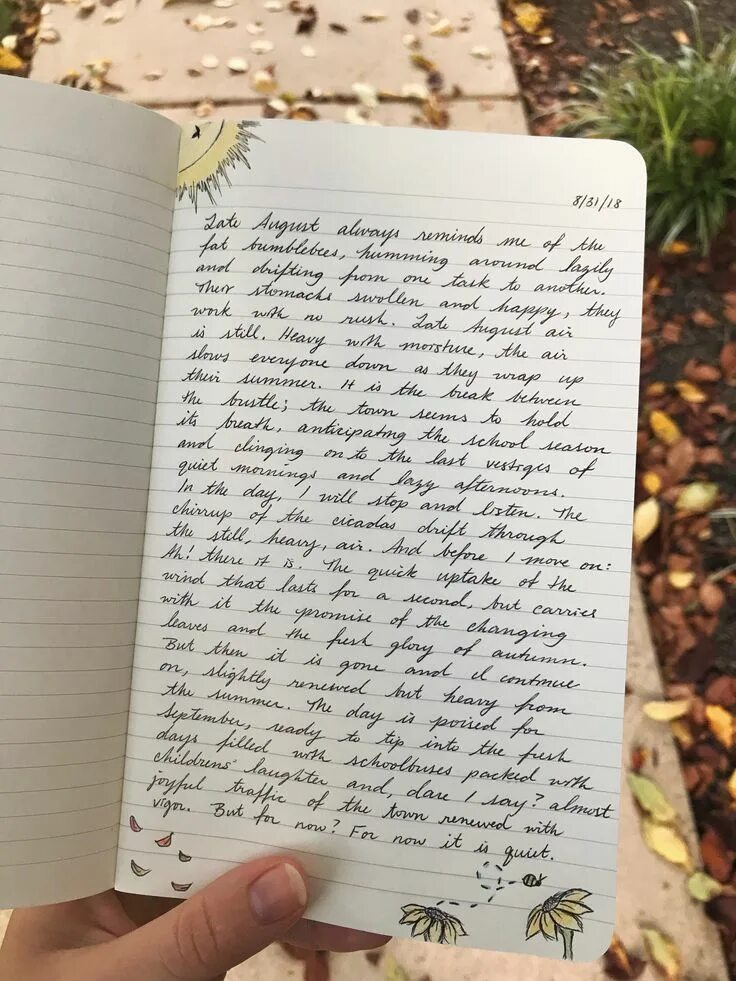 8/31/18
Late August always reminds me of the
fat bumblebees, humming around lazily
and drifting from one task to another.
Their stomachs swollen and happy, they
work with no rush. Late August air
is still. Heavy with moisture, the air
slows everyone down as they wrap up
their summer. It is the break between
the bustle; the town seems to hold
its breath, anticipating the school season
and clinging on to the last vestiges of
quiet mornings and lazy afternoons.
In the day, I will stop and listen. The
chirrup of the cicadas drift through
the still, heavy, air. And before I move on:
Ah! there it is. The quick uptake of the
wind that lasts for a second, but carries
with it the promise of the changing
leaves and the fresh glory of autumn.
But then it is gone and I continue
on, slightly renewed but heavy from
the summer. The day is poised for
September, ready to tip into the fresh
days filled with schoolbuses packed with
childrens' laughter and, dare I say? almost
joyful traffic of the town renewed with
vigor. But for now? For now it is quiet.